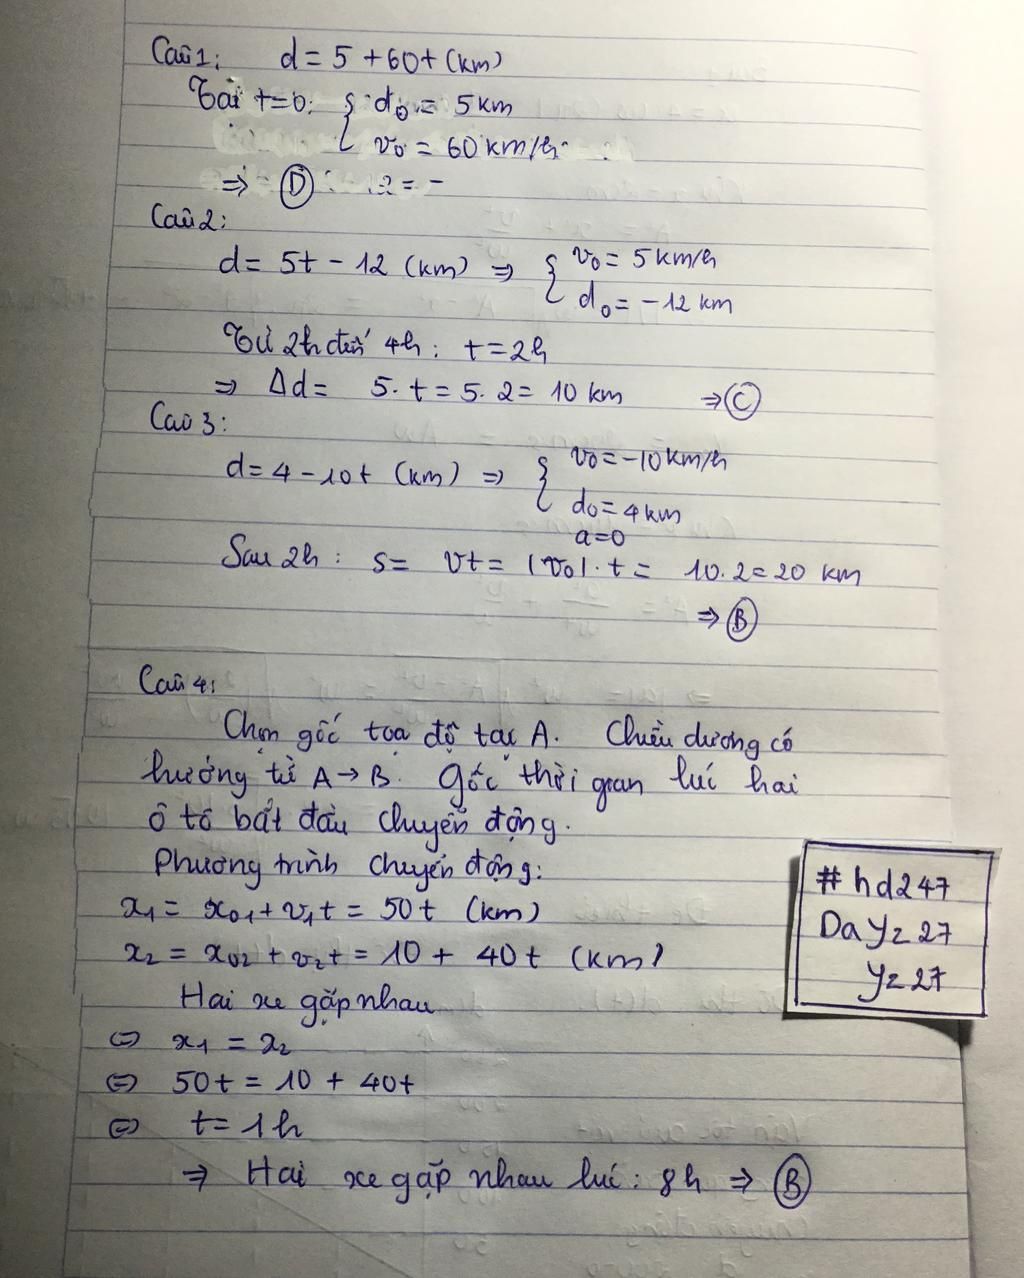 Câu 1: d = 5 + 60t (km)
Tại t=0: { d₀ = 5 km
v₀ = 60 km/h
⇒ Ⓓ 2 = -
Câu 2:
d = 5t - 12 (km) ⇒ { v₀ = 5 km/h
d₀ = -12 km
Từ 2h đến 4h : t = 2h
⇒ Δd = 5. t = 5. 2 = 10 km ⇒ Ⓒ
Câu 3:
d = 4 - 10t (km) ⇒ { v₀ = -10 km/h
d₀ = 4 km
a = 0
Sau 2h : s = vt = |v₀| . t = 10. 2 = 20 km
⇒ Ⓑ
Câu 4:
Chọn gốc toạ độ tại A. Chiều dương có
hướng từ A → B. Gốc thời gian lúc hai
ô tô bắt đầu chuyển động.
Phương trình chuyển động:
x₁ = x₀₁ + v₁t = 50t (km)
x₂ = x₀₂ + v₂t = 10 + 40t (km)
Hai xe gặp nhau
⇔ x₁ = x₂
⇔ 50t = 10 + 40t
⇔ t = 1h
⇒ Hai xe gặp nhau lúc : 8h ⇒ Ⓑ
#hd247
DaYz27
Yz27